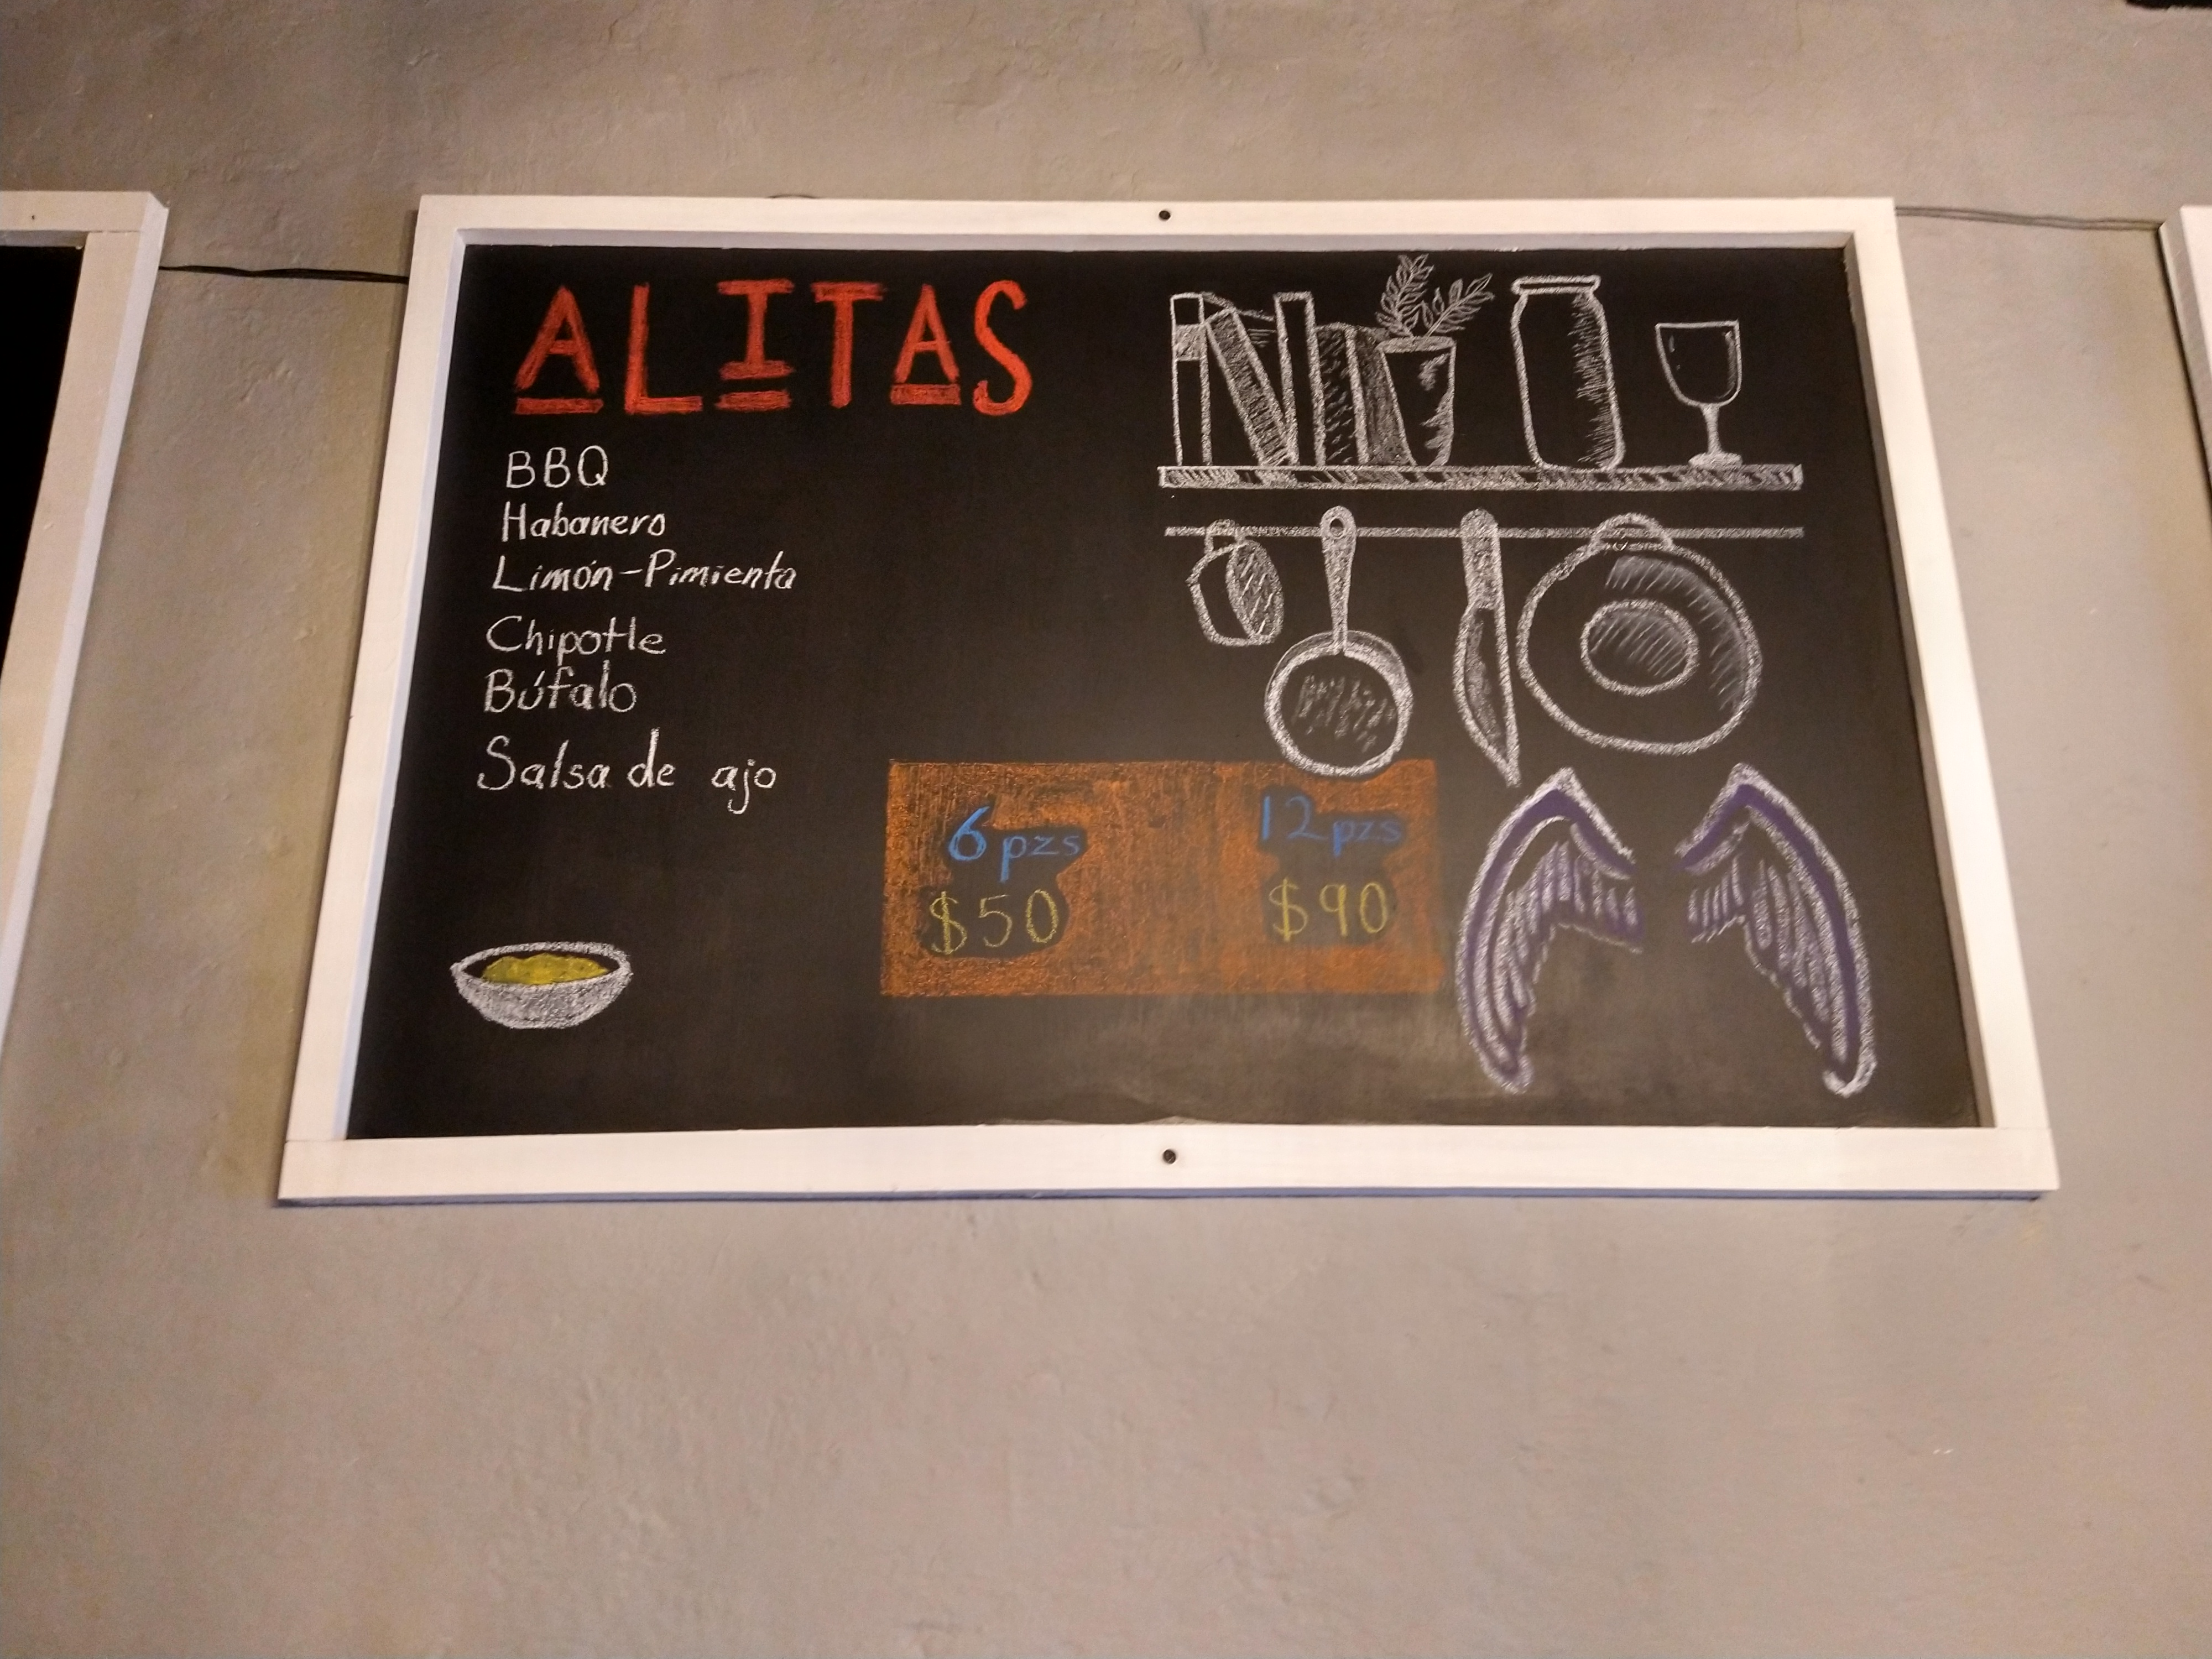 ALITAS
BBQ
Habanero
Limón-Pimienta
Chipotle
Búfalo
Salsa de ajo
6 pzs 12 pzs
$50 $90